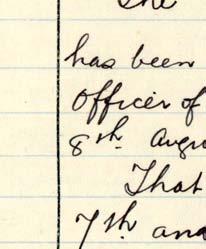 She
has been
Officer of
8th. Augu
That
7th and